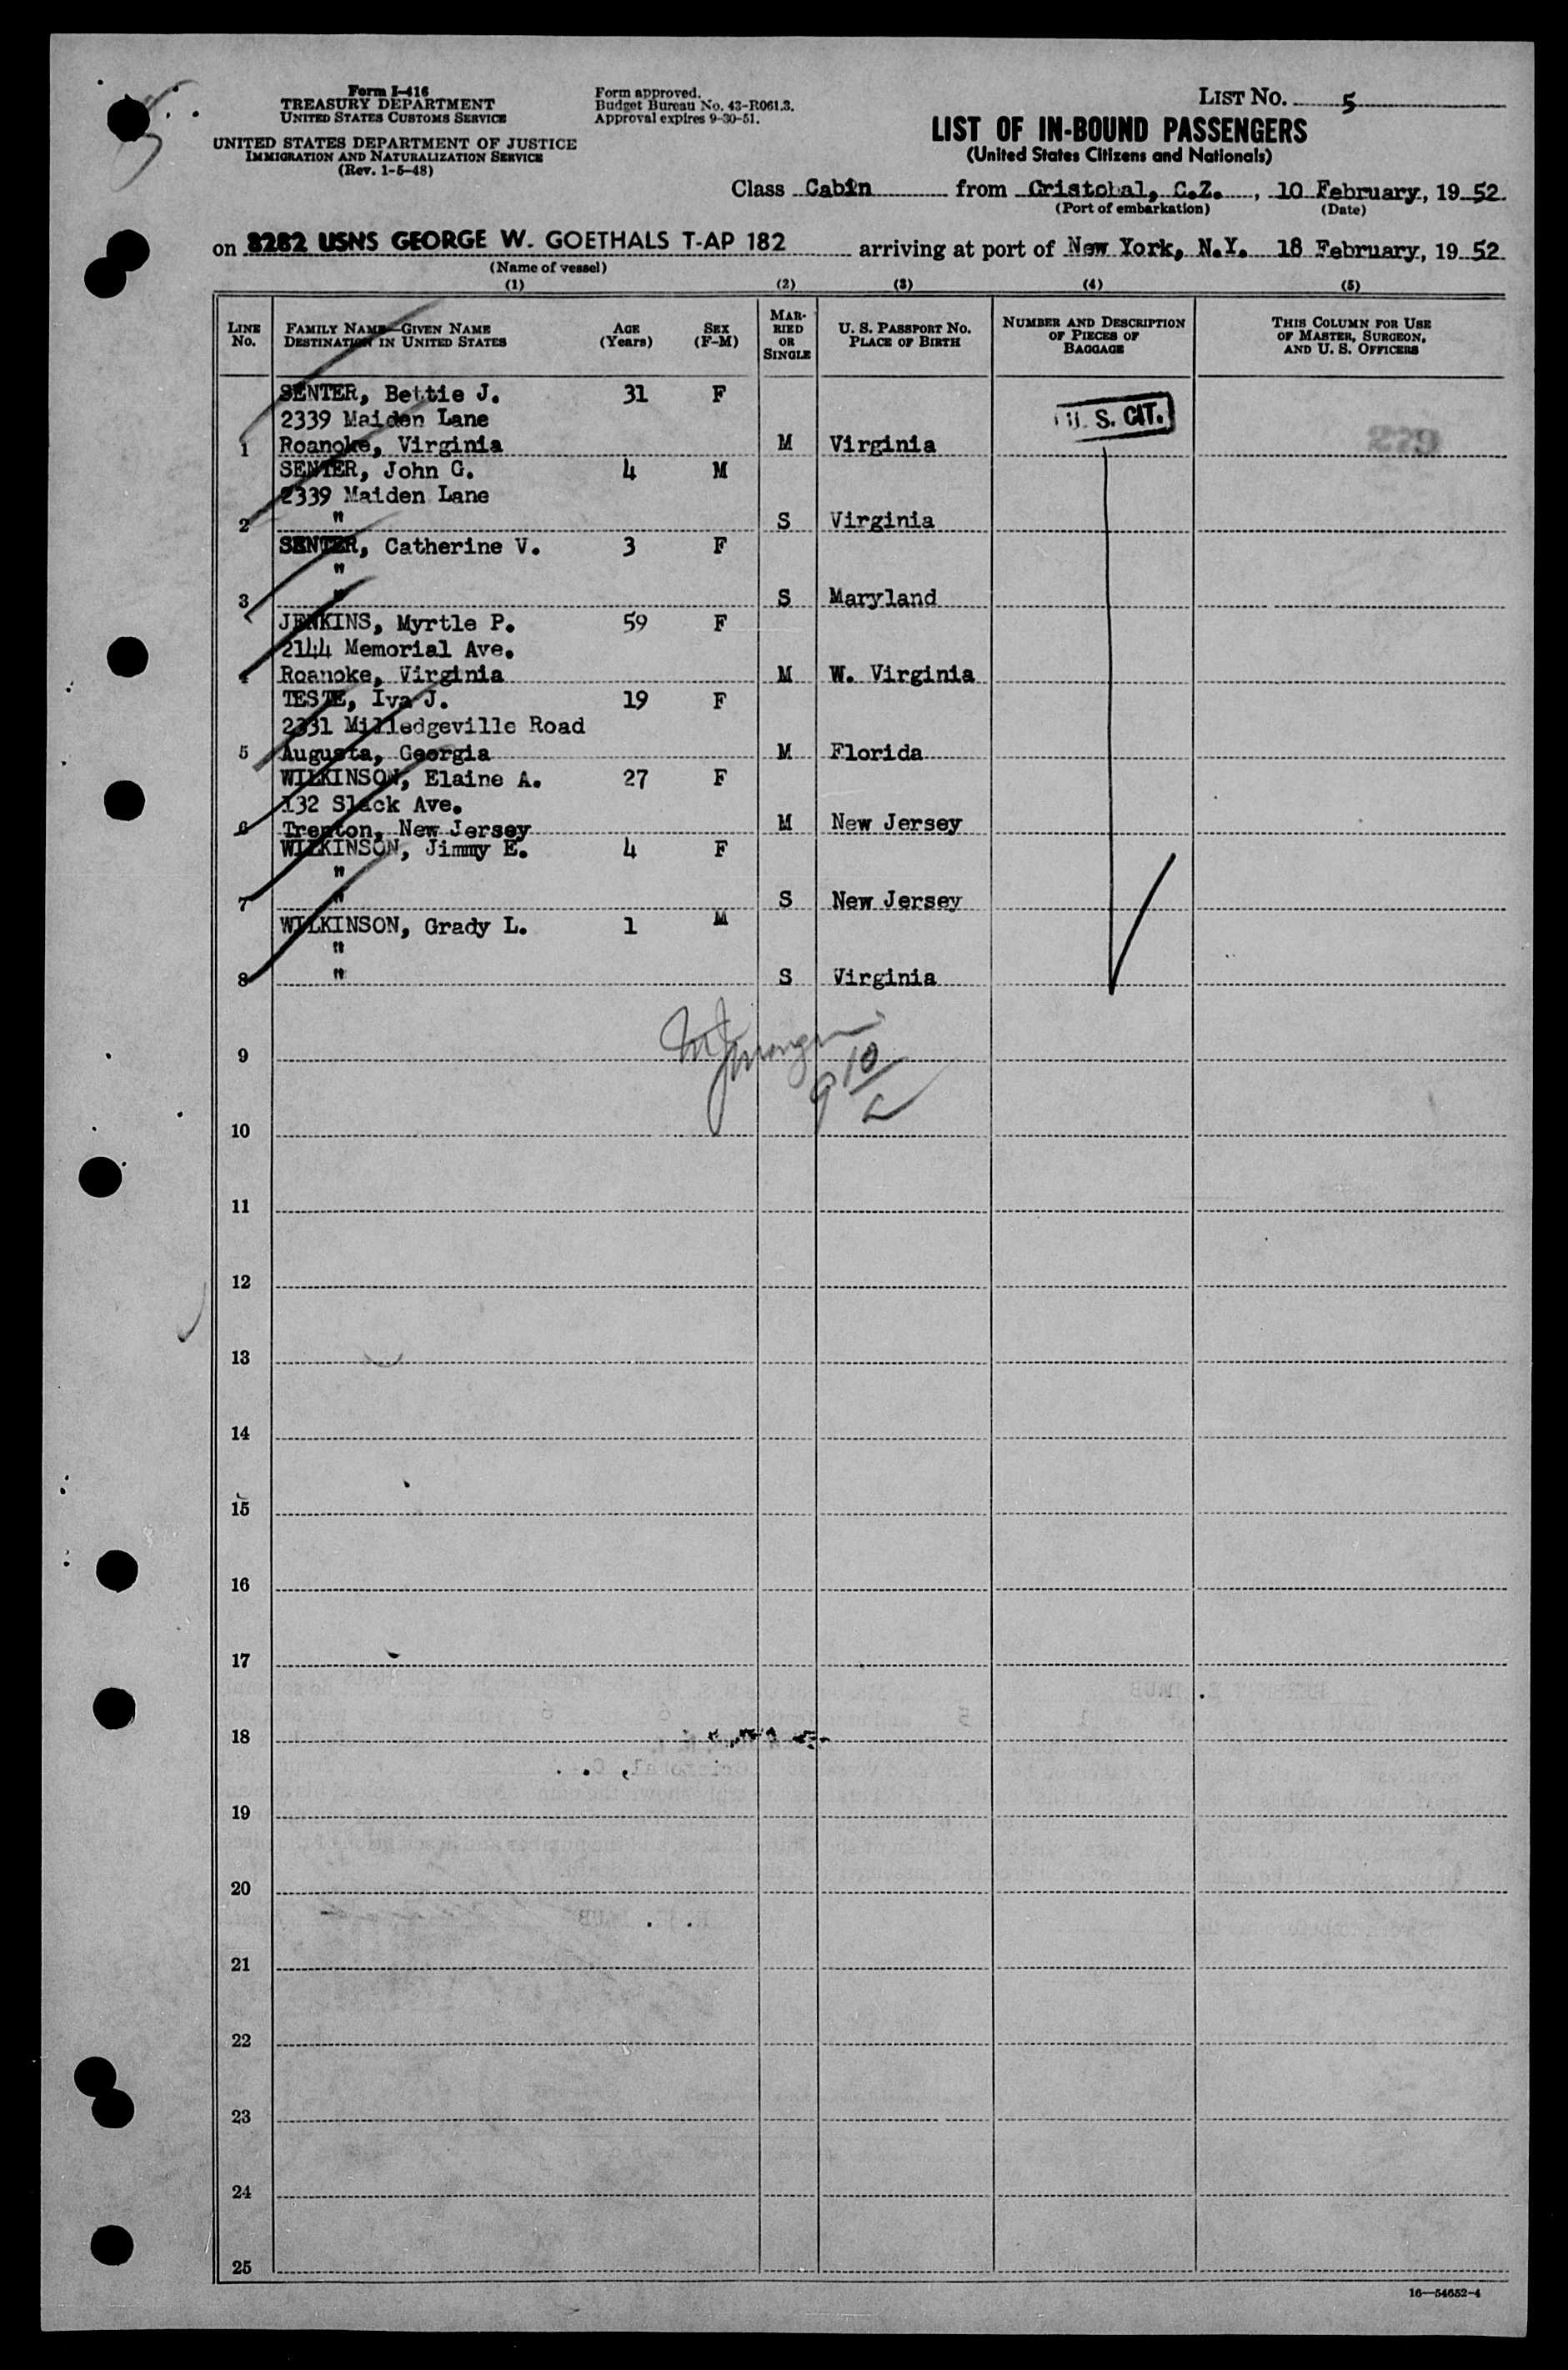 Form I-416
TREASURY DEPARTMENT
UNITED STATES CUSTOMS SERVICE
UNITED STATES DEPARTMENT OF JUSTICE
IMMIGRATION AND NATURALIZATION SERVICE
(Rev. 1-5-48)
Form approved.
Budget Bureau No. 43-R061.3.
Approval expires 9-30-51.
LIST NO. 5
LIST OF IN-BOUND PASSENGERS
(United States Citizens and Nationals)
Class Cabin from Cristobal, C.Z., 10 February, 1952
(Port of embarkation) (Date)
on 8282 USNS GEORGE W. GOETHALS T-AP 182 arriving at port of New York, N.Y. 18 February, 1952
(Name of vessel)
(1) (2) (3) (4) (5)
LINE No. FAMILY NAME—GIVEN NAME DESTINATION IN UNITED STATES AGE (Years) SEX (F-M) MARRIED OR SINGLE U. S. PASSPORT NO. PLACE OF BIRTH NUMBER AND DESCRIPTION OF PIECES OF BAGGAGE THIS COLUMN FOR USE OF MASTER, SURGEON, AND U. S. OFFICERS
SENTER, Bettie J. 31 F
2339 Maiden Lane U. S. CIT.
1 Roanoke, Virginia M Virginia 279
SENTER, John G. 4 M
2339 Maiden Lane
2 " S Virginia
SENTER, Catherine V. 3 F
"
3 " S Maryland
JENKINS, Myrtle P. 59 F
2144 Memorial Ave.
4 Roanoke, Virginia M W. Virginia
TESTE, Iva J. 19 F
2331 Milledgeville Road
5 Augusta, Georgia M Florida
WILKINSON, Elaine A. 27 F
132 Slack Ave.
6 Trenton, New Jersey M New Jersey
WILKINSON, Jimmy E. 4 F
"
7 " S New Jersey
WILKINSON, Grady L. 1 M
"
8 " S Virginia
9
10
11
12
13
14
15
16
17
18
19
20
21
22
23
24
25
16—54652-4